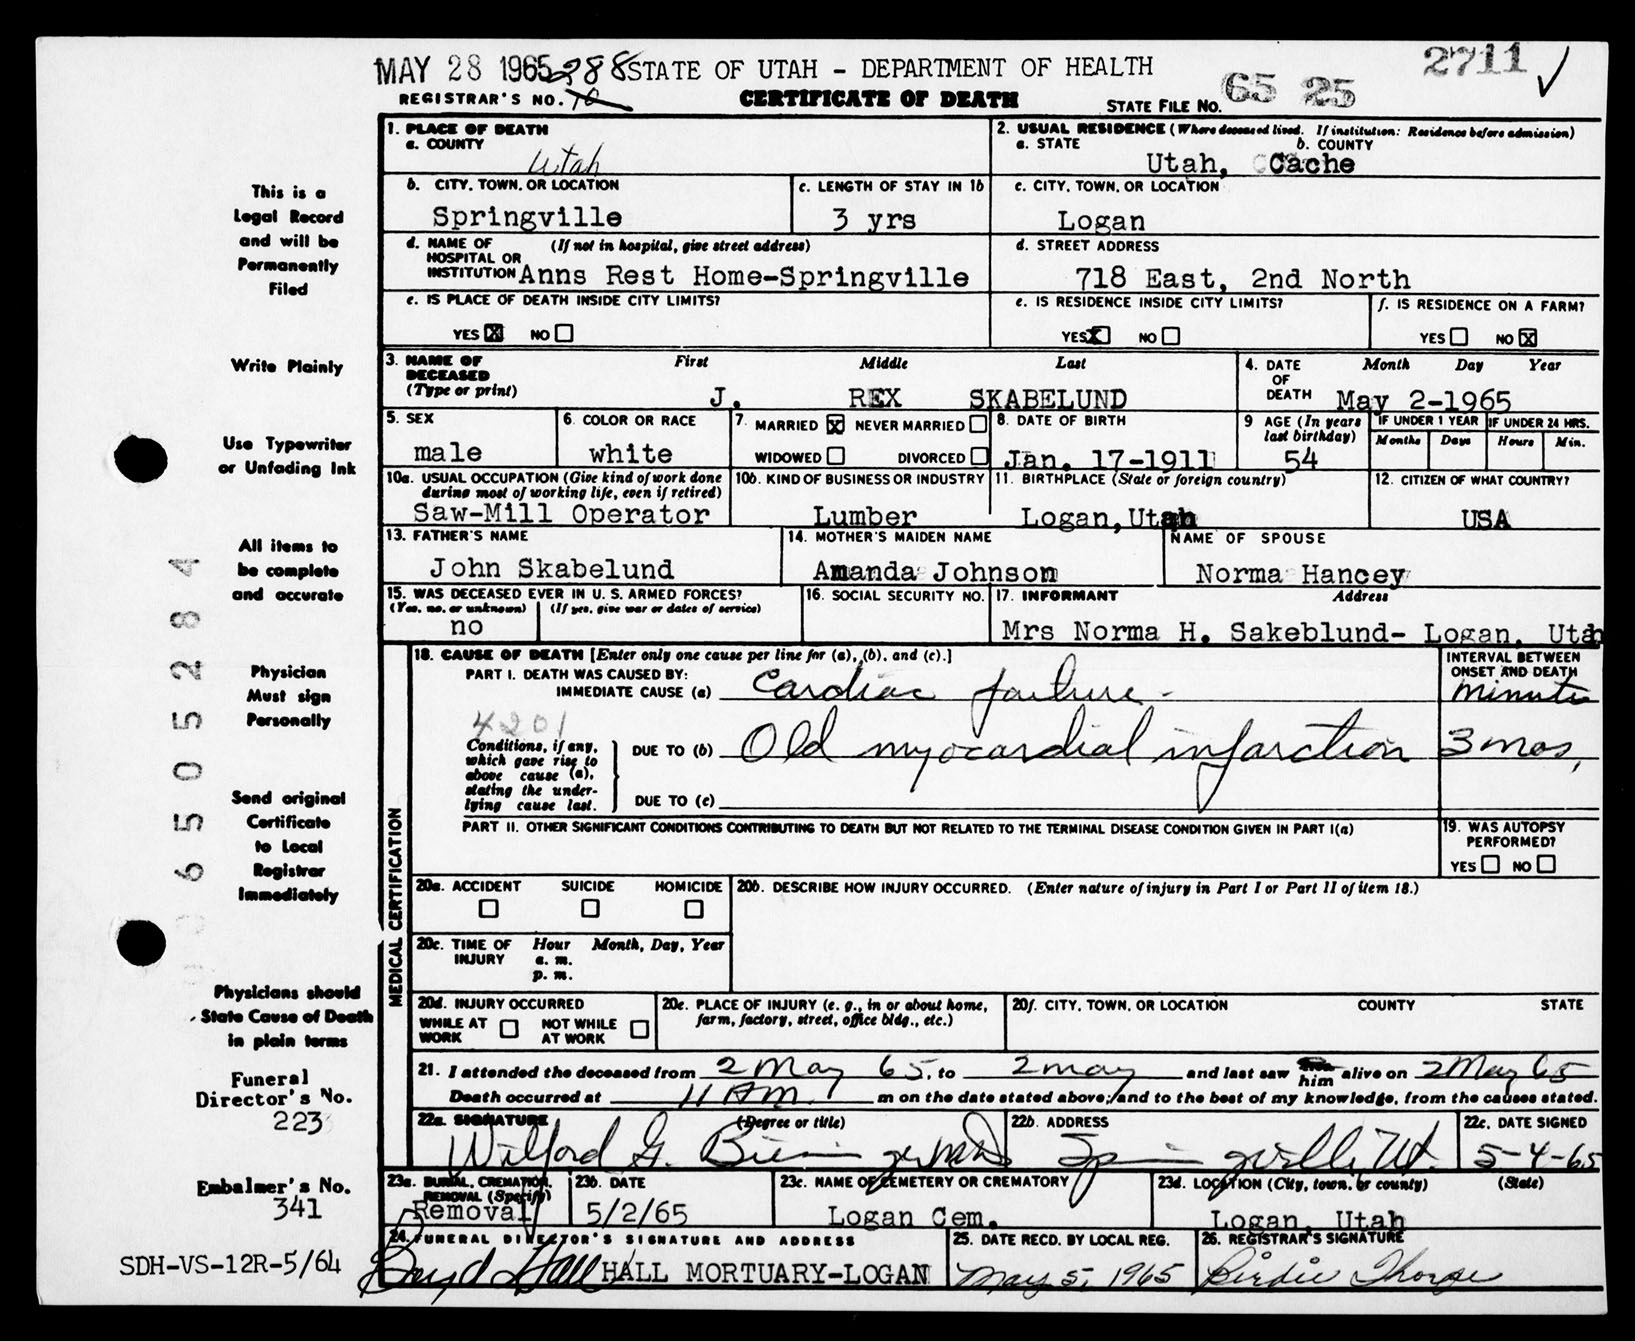 MAY 28 1965 288 STATE OF UTAH - DEPARTMENT OF HEALTH 2711 ✓
REGISTRAR'S NO. CERTIFICATE OF DEATH STATE FILE NO. 65 25
1. PLACE OF DEATH 2. USUAL RESIDENCE (Where deceased lived. If institution: Residence before admission)
a. COUNTY Utah a. STATE Utah, b. COUNTY Cache
b. CITY, TOWN, OR LOCATION Springville c. LENGTH OF STAY IN 1b 3 yrs c. CITY, TOWN, OR LOCATION Logan
d. NAME OF HOSPITAL OR INSTITUTION (If not in hospital, give street address) Anns Rest Home-Springville d. STREET ADDRESS 718 East, 2nd North
e. IS PLACE OF DEATH INSIDE CITY LIMITS? e. IS RESIDENCE INSIDE CITY LIMITS? f. IS RESIDENCE ON A FARM?
YES X NO YES X NO YES NO X
3. NAME OF DECEASED (Type or print) First Middle Last 4. DATE OF DEATH Month Day Year
J. REX SKABELUND May 2-1965
5. SEX 6. COLOR OR RACE 7. MARRIED X NEVER MARRIED 8. DATE OF BIRTH 9 AGE (In years last birthday) IF UNDER 1 YEAR IF UNDER 24 HRS.
Months Days Hours Min.
male white WIDOWED DIVORCED Jan. 17-1911 54
10a. USUAL OCCUPATION (Give kind of work done during most of working life, even if retired) 10b. KIND OF BUSINESS OR INDUSTRY 11. BIRTHPLACE (State or foreign country) 12. CITIZEN OF WHAT COUNTRY?
Saw-Mill Operator Lumber Logan, Utah USA
13. FATHER'S NAME 14. MOTHER'S MAIDEN NAME NAME OF SPOUSE
John Skabelund Amanda Johnson Norma Hancey
15. WAS DECEASED EVER IN U. S. ARMED FORCES? 16. SOCIAL SECURITY NO. 17. INFORMANT Address
(Yes, no, or unknown) (If yes, give war or dates of service)
no Mrs Norma H. Sakeblund- Logan, Utah
18. CAUSE OF DEATH [Enter only one cause per line for (a), (b), and (c).] INTERVAL BETWEEN ONSET AND DEATH
PART I. DEATH WAS CAUSED BY:
IMMEDIATE CAUSE (a) Cardiac failure - minutes
4201
Conditions, if any, which gave rise to above cause (a), stating the underlying cause last.
DUE TO (b) Old myocardial infarction 3 mos,
DUE TO (c)
PART II. OTHER SIGNIFICANT CONDITIONS CONTRIBUTING TO DEATH BUT NOT RELATED TO THE TERMINAL DISEASE CONDITION GIVEN IN PART I(a) 19. WAS AUTOPSY PERFORMED?
YES NO
20a. ACCIDENT SUICIDE HOMICIDE 20b. DESCRIBE HOW INJURY OCCURRED. (Enter nature of injury in Part I or Part II of item 18.)
20c. TIME OF INJURY Hour a. m. p. m. Month, Day, Year
20d. INJURY OCCURRED 20e. PLACE OF INJURY (e. g., in or about home, farm, factory, street, office bldg., etc.) 20f. CITY, TOWN, OR LOCATION COUNTY STATE
WHILE AT WORK NOT WHILE AT WORK
21. I attended the deceased from 2 May 65, to 2 may and last saw him alive on 2 May 65
Death occurred at 11 AM m on the date stated above; and to the best of my knowledge, from the causes stated.
22a. SIGNATURE (Degree or title) 22b. ADDRESS 22c. DATE SIGNED
Wilford G. Biesinger MD Springville, Ut. 5-4-65
23a. BURIAL, CREMATION, REMOVAL (Specify) 23b. DATE 23c. NAME OF CEMETERY OR CREMATORY 23d. LOCATION (City, town, or county) (State)
Removal 5/2/65 Logan Cem. Logan, Utah
24. FUNERAL DIRECTOR'S SIGNATURE AND ADDRESS 25. DATE RECD. BY LOCAL REG. 26. REGISTRAR'S SIGNATURE
Boyd Hall HALL MORTUARY-LOGAN May 5, 1965 Birdie Thorpe
MEDICAL CERTIFICATION
This is a
Legal Record
and will be
Permanently
Filed
Write Plainly
Use Typewriter
or Unfading Ink
All items to
be complete
and accurate
Physician
Must sign
Personally
Send original
Certificate
to Local
Registrar
Immediately
Physicians should
State Cause of Death
in plain terms
Funeral
Director's No.
223
Embalmer's No.
341
SDH-VS-12R-5/64
65 05284